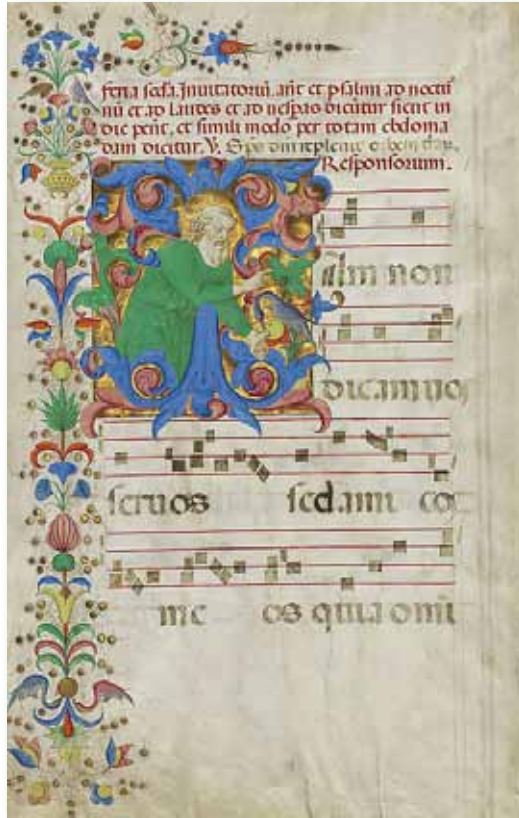 feria sexta Inuitatoriũ. añt et psalmi ad noctũ
nũ et ad laudes et ad uesperas dicũtur sicut in
die pent, et simili modo per totam ebdoma
dam dicitur. V. Sps dñi repleuit orbem
Responsorium.
Iam non
dicam uo
seruos sed ami cos
me os quia omi